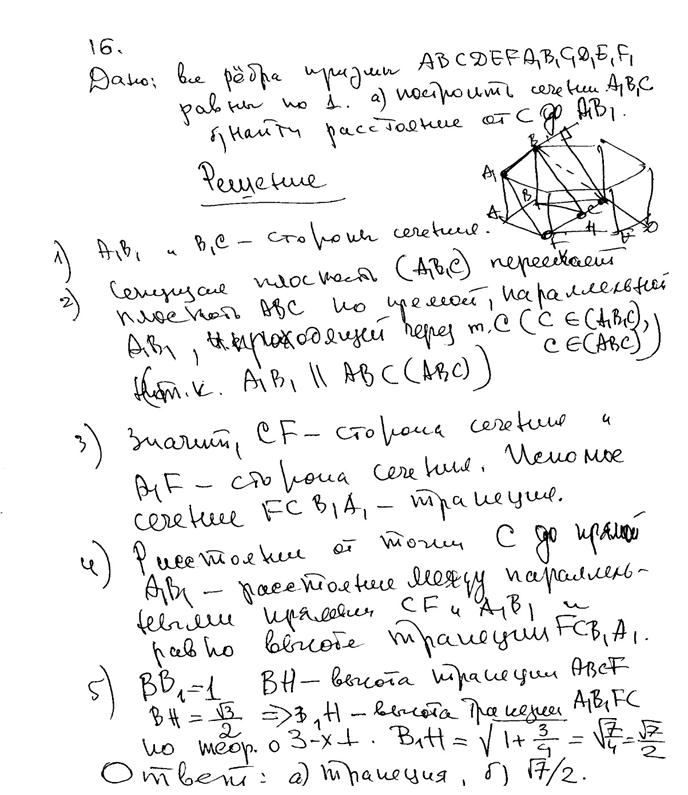 16.
Дано: все рёбра призмы ABCDEFA₁B₁C₁D₁E₁F₁
равны по 1. а) построить сечение A₁B₁C
б) найти расстояние от C до A₁B₁.
Решение
B₁
A₁
B
A
C
H
F
E
D
1) A₁B₁ и B₁C – стороны сечения.
2) Секущая плоскость (A₁B₁C) пересекает
плоскость ABC по прямой, параллельной
A₁B₁, проходящей через т. C (C ∈ (A₁B₁C),
C ∈ (ABC))
(т.к. A₁B₁ || ABC (ABC))
3) Значит, CF – сторона сечения и
A₁F – сторона сечения. Искомое
сечение FCB₁A₁ – трапеция.
4) Расстояние от точки C до прямой
A₁B₁ – расстояние между параллель-
ными прямыми CF и A₁B₁ и
равно высоте трапеции FCB₁A₁.
5) BB₁=1 BH – высота трапеции ABCF
BH = √3/2 => B₁H – высота трапеции A₁B₁FC
по теор. о 3-х ⊥. B₁H = √(1 + 3/4) = √(7/4) = √7/2
Ответ: а) трапеция, б) √7/2.